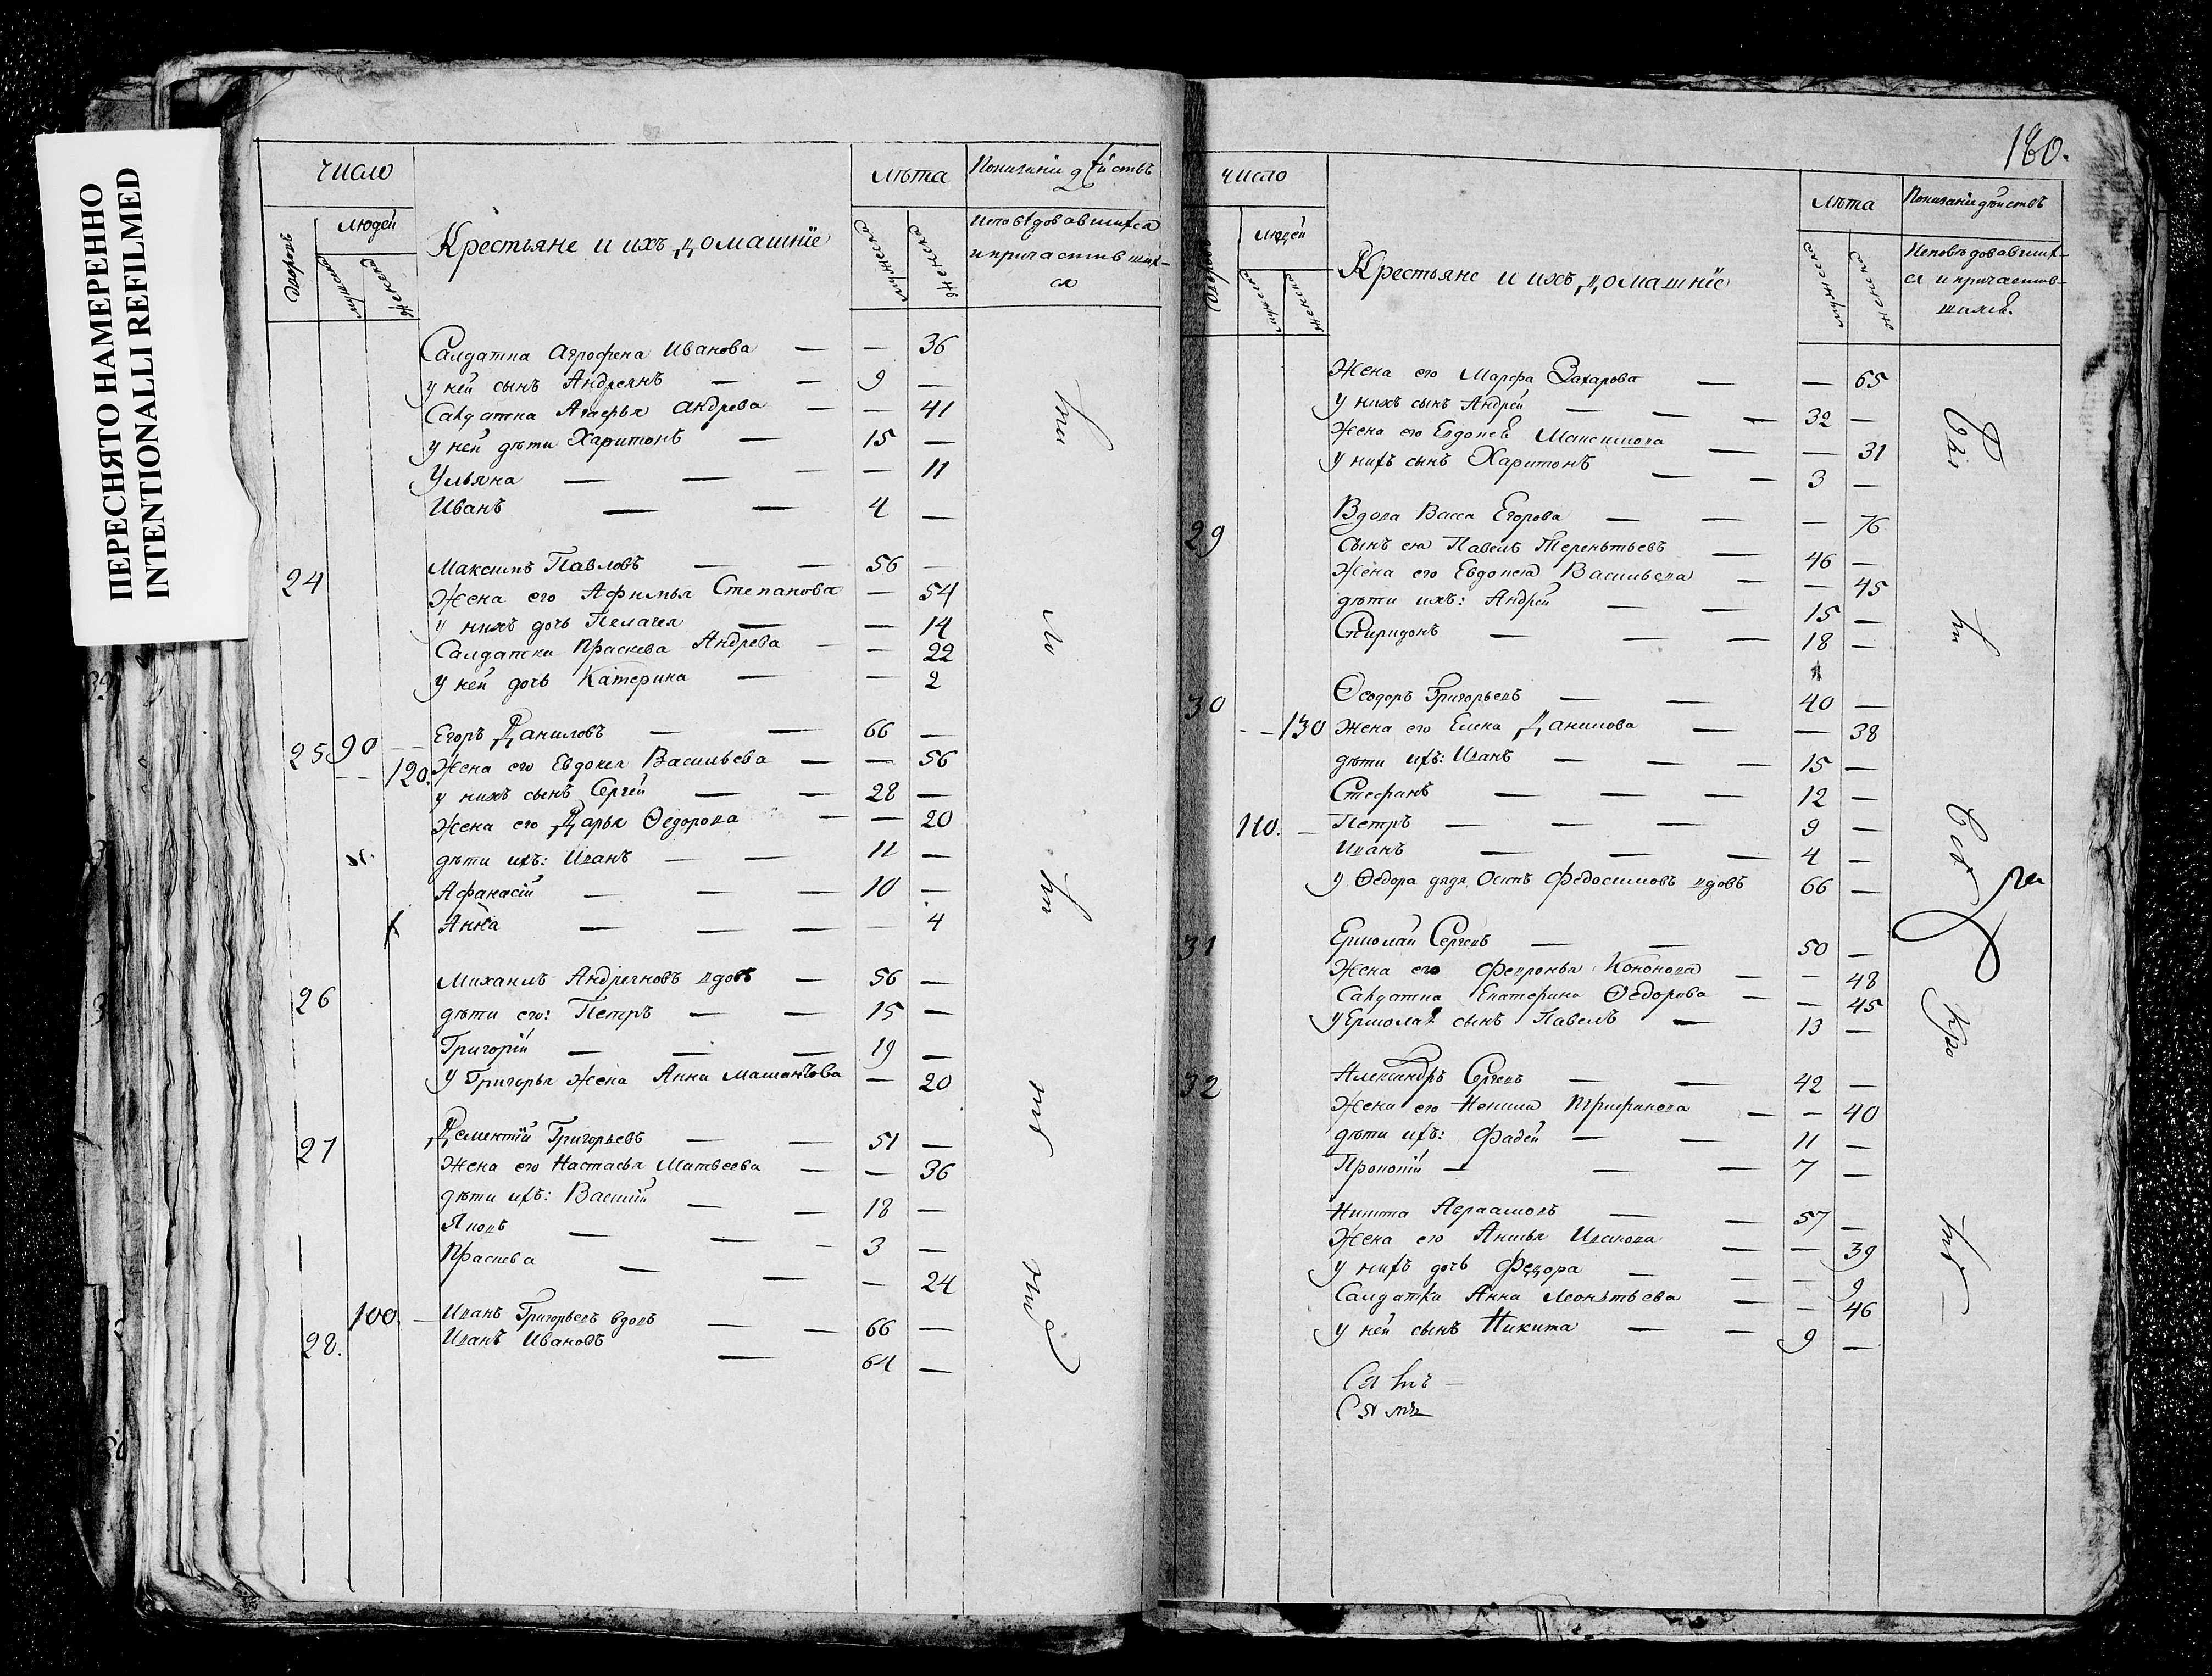 ПЕРЕСНЯТО НАМЕРЕННО
INTENTIONALLI REFILMED
число
дворовъ
людей
мужеска
женска
Крестьяне и ихъ домашніе
лѣта
мужеска
женска
Показаніе дѣйствъ
Исповѣдовавшихся
и причастивших-
ся
Салдатка Агрофена Иванова — — 36
у ней сынъ Андреянъ — — 9 —
Салдатка Агафья Андрева — — 41
у ней дѣти Харитонъ — 15 —
Ульяна — — — — 11
Иванъ — — 4 —
24 Максимъ Павловъ — — 56 —
Жена его Афимья Степанова — 54
у нихъ дочь Пелагея — — 14
Салдатка Праскева Андрева — — 22
у ней дочь Катерина — — 2
25 90 — Егоръ Даниловъ — — 66 —
— 120. Жена его Евдокея Васильева — — 56
у нихъ сынъ Сергей — — 28 —
Жена его Дарья Ѳедорова — — 20
дѣти ихъ: Иванъ — — 11 —
Афанасій — — — 10 —
Анна — — — — 4
26 Михаилъ Андреяновъ вдовъ — 56 —
дѣти его: Петръ — — 15 —
Григорій — — — 19 —
у Григорья жена Анна — 20
27 Дементій Григорьевъ — — 51 —
Жена его Настасья Матвеева — — 36
дѣти ихъ: Василій — — 18 —
Яковъ — — — 3 —
Праскева — — — 24
100. — Иванъ Григорьевъ вдовъ — — 66 —
28. Иванъ Ивановъ — 64 —
180.
число
дворовъ
людей
мужеска
женска
Крестьяне и ихъ домашніе
лѣта
мужеска
женска
Показаніе дѣйствъ
Исповѣдовавших-
ся и причастив-
шихся.
Жена его Марфа Захарова — — 65
у нихъ сынъ Андрей — — — 32 —
Жена его Евдокея Максимова — — 31
у нихъ сынъ Харитонъ — — 3 —
29 Вдова Васса Егорова — — — 76
сынъ ея Павелъ Терентьевъ — 46 —
Жена его Евдокея Васильева — — 45
дѣти ихъ: Андрей — — 15 —
Спиридонъ — — — 18 —
30 Ѳеодоръ Григорьевъ — — 40 —
— 130 Жена его Елена Данилова — — 38
дѣти ихъ: Иванъ — — — 15 —
Стефанъ — — — 12 —
110. — Петръ — — — 9 —
Иванъ — — — 4 —
у Ѳедора дядя Осипъ вдовъ 66 —
31 Ермолай Сергеевъ — — 50 —
Жена его Февронья Кононова — — 48
Салдатка Екатерина Ѳедорова — — 45
у Ермолая сынъ Павелъ — 13 —
32 Александръ Сергеевъ — — 42 —
Жена его Ненила — — 40
дѣти ихъ: Фадей — — 11 —
Прокопій — — — 7 —
Никита Авраамовъ — — 57 —
Жена его Анисья Иванова — — 39
у нихъ дочь Федора — — — 9
Салдатка Анна Леонтьева — — 46
у ней сынъ Никита — — 9 —